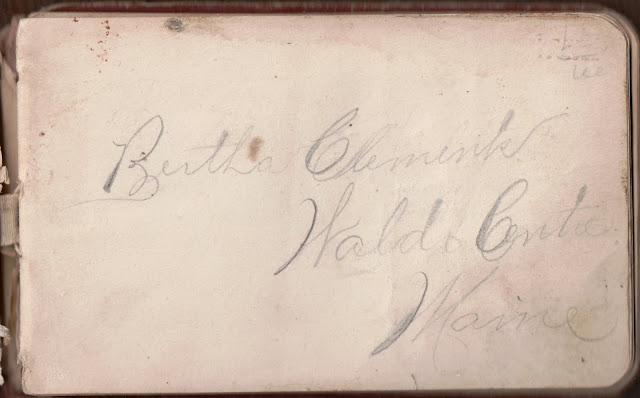 Bertha Clements
Waldo Centre
Maine